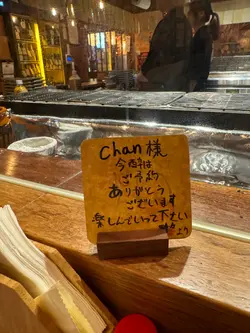 chan様
今宵は
ご予約
ありがとう
ございます
楽しんでいって下さい
より